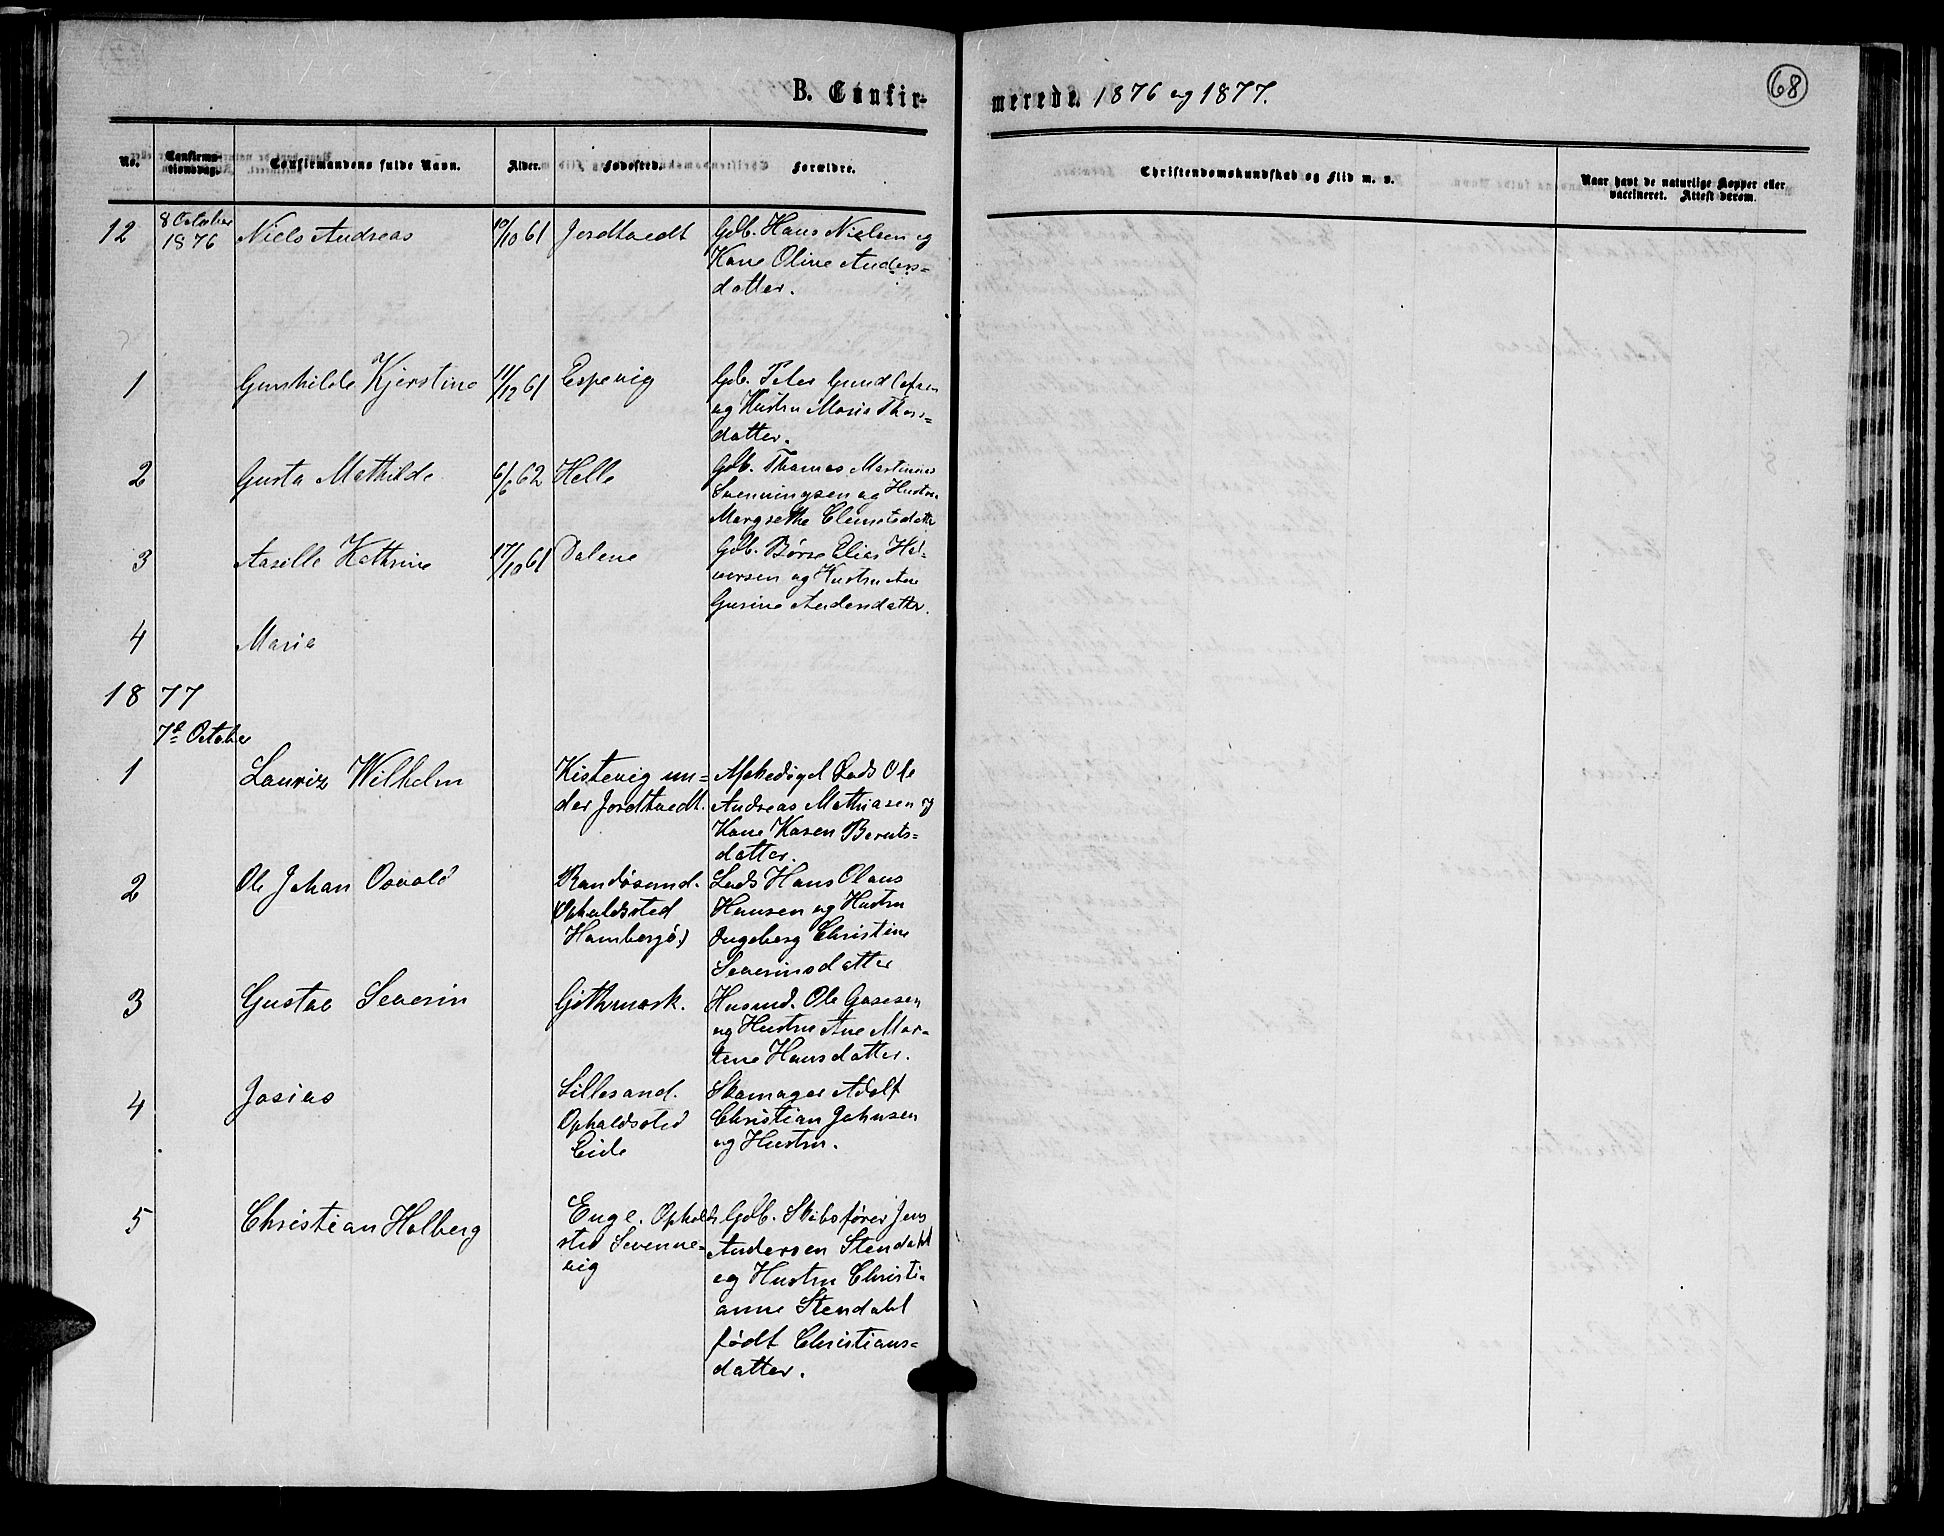 68
B. Confir- merede. 1876 og 1877.
No. Confirmationsdag. Confirmandens fulde Navn. Alder. Fødested. Forældre. Christendomskundskab og Flid m. v. Naar havt de naturlige Kopper eller vaccineret. Attest derom.
12 8 October 1876 Niels Andreas 10/10 61 Jordtvedt Gdb. Hans Nielsen og
Kone Oline Anders=
datter.
1 Gunhilde Kjerstine 11/12 61 Espevig Gdb. Peter
og Hustru Maria Thors=
datter.
2 Gusta Mathilde 6/6 62 Helle Gdb. Thomas Martinius
Svenningsen og Hustru
Margrethe
3 Aaselle Kathrine 17/10 61 Dalene Gdb. Børre Elias Hal=
vorsen og Hustru Ane
Gurine Andersdatter.
4 Maria
1877
7de October
1 Lauriz Wilhelm Kistevig un= Afskediget Lods Ole
der Jordtvedt. Andreas Mathiasen og
Kone Karen Bernts=
datter.
2 Ole Johan Osvald Randøsund. Lods Hans Olaus
Opholdssted Hansen og Hustru
Hombergø) Ingeborg Christine
Severinsdatter
3 Gustav Severin Gjethmark. Husmd. Ole Gasesen
og Hustru Ane Mar=
tene Hansdatter.
4 Josias Lillesand. Skomager Adolf
Opholdssted Christian Johnsen
Eide og Hustru.
5 Christian Holberg Enge. Opholds Gdb. Skibsfører Jens
sted Sevenne= Andersen Stendahl
vig og Hustru Christi=
anne Stendahl
født Christians=
datter.